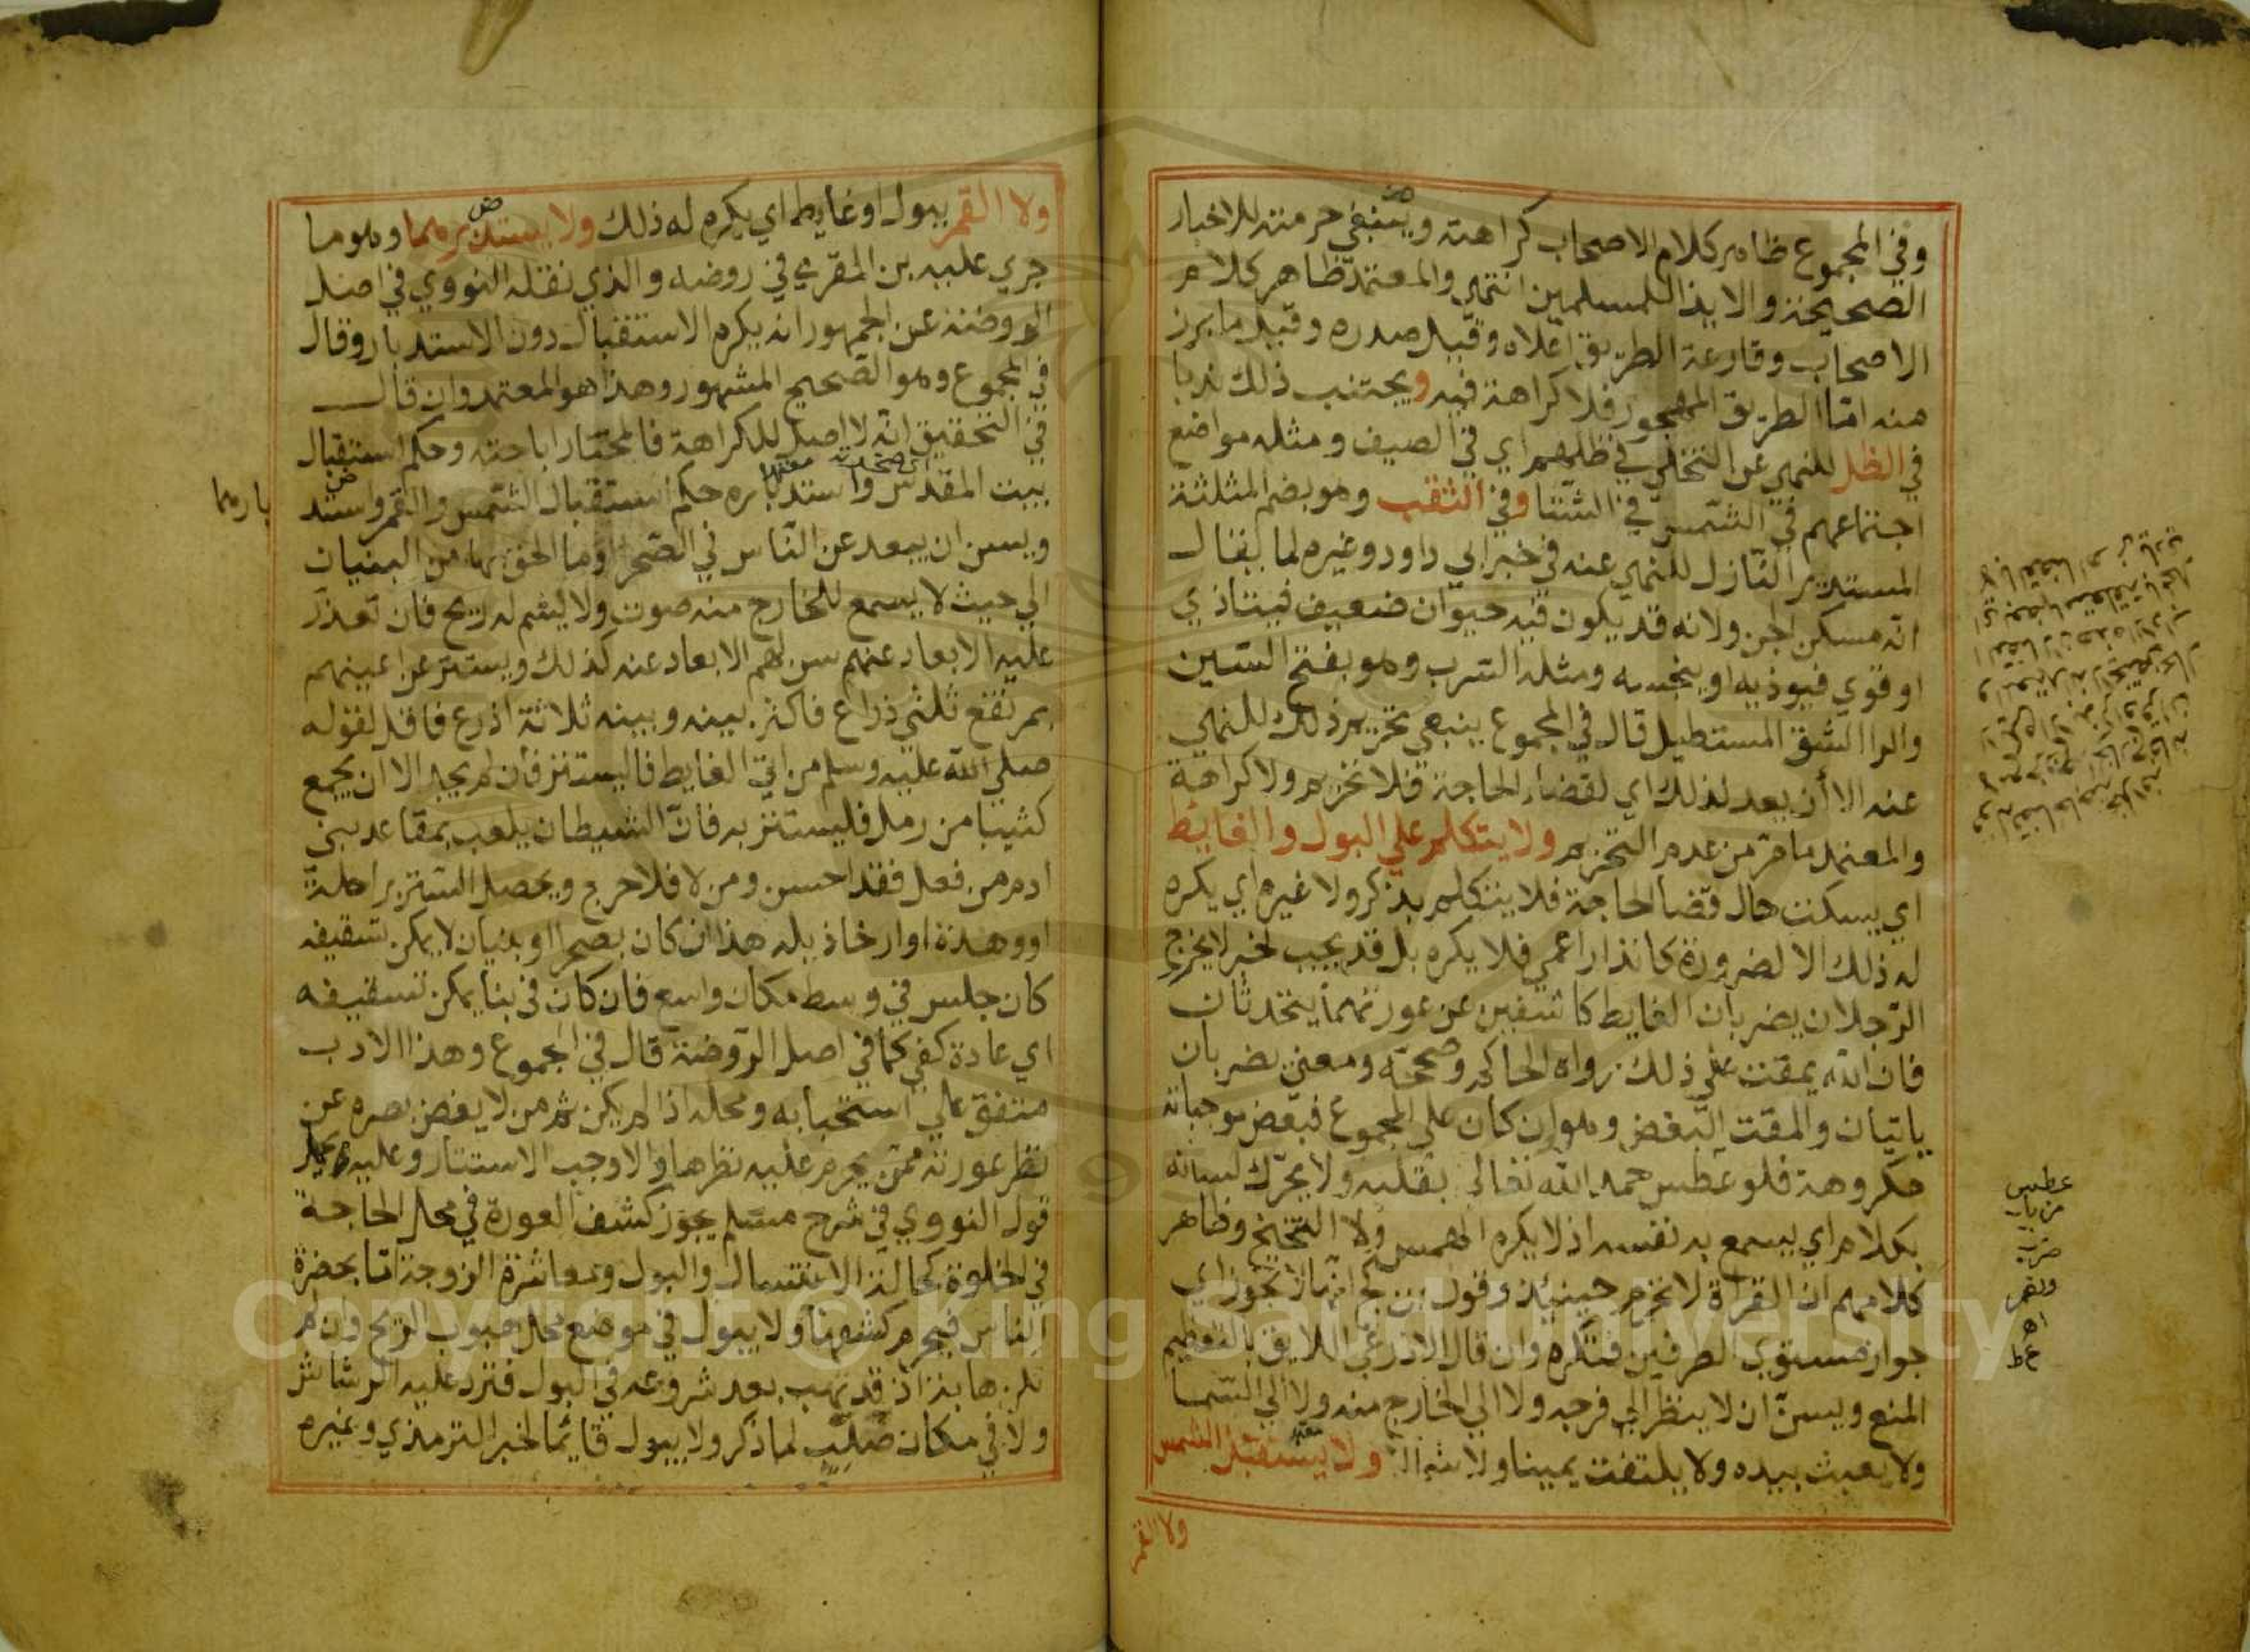 وفي المجموع ظاهر كلام الاصحاب كراهته وينبغي حرمته للاخبار
الصحيحة والايذا للمسلمين انتهي والمعتمد ظاهر كلام
الاصحاب وقارعة الطريق اعلاه وقيل صدره وقيل ما برز
منه اما الطريق المهجور فلا كراهة فيه ويجتنب ذلك ندبا
في الظل للنهي عن التخلي في ظلهم اي في الصيف ومثله مواضع
اجتماعهم في الشمس في الشتا وفي الثقب وهو بضم المثلثة
المستدير النازل للنهي عنه في خبر ابي داود وغيره لما يقال
انه مسكن الجن ولانه قد يكون فيه حيوان ضعيف فيتاذي
او قوي فيوذيه او ينجسه ومثله السرب وهو بفتح السين
والرا الشق المستطيل قال في المجموع ينبغي تحريم ذلك للنهي
عنه الا أن يعد لذلك اي لقضاء الحاجة فلا تحريم ولا كراهة
والمعتمد ما مر من عدم التحريم ولا يتكلم علي البول والغايط
اي يسكت حال قضا الحاجة فلا يتكلم بذكر ولا غيره اي يكره
له ذلك الا لضرورة كانذار اعمي فلا يكره بل قد يجب لخبر لا يخرج
الرجلان يضربان الغايط كاشفين عن عورتهما يتحدثان
فان الله يمقت علي ذلك رواه الحاكم وصححه ومعني يضربان
ياتيان والمقت البغض وهو وان كان علي المجموع فبعض موجباته
مكروهة فلو عطس حمد الله تعالي بقلبه ولا يحرك لسانه
بكلام اي يسمع به نفسه اذ لا يكره الهمس ولا التنحنح وظاهر
كلامهم ان القراة لا تحرم حينئذ وقول ابن كج انها لا تجوز اي
جواز مستوي الطرفين فتكره وان قال الاذرعي اللايق بالتعظيم
المنع ويسن ان لا ينظر الي فرجه ولا الي الخارج منه ولا الي السما
ولا يعبث بيده ولا يلتفت يمينا ولا شمالا ولا يستقبل الشمس
ولا القمر
عطس
من باب
ضرب
ولا القمر ببول او غايط اي يكره له ذلك ولا يستدبرهما وهو ما
جري عليه بن المقري في روضه والذي نقله النووي في اصل
الروضة عن الجمهور انه يكره الاستقبال دون الاستدبار وقال
في المجموع وهو الصحيح المشهور وهذا هو المعتمد وان قال
في التحقيق انه لا اصل للكراهة فالمختار اباحته وحكم استقبال
بيت المقدس واستدباره حكم استقبال الشمس والقمر واستد
بارهما
ويسن ان يبعد عن الناس في الصحرا وما الحق بها من البنيان
الي حيث لا يسمع للخارج منه صوت ولا يشم له ريح فان تعذر
عليه الابعاد عنهم سن لهم الابعاد عنه كذلك ويستتر عن اعينهم
بمرتفع ثلثي ذراع فاكثر بينه وبينه ثلاثة اذرع فاقل لقوله
صلي الله عليه وسلم من اتي الغايط فاليستتر فان لم يجد الا ان يجمع
كثيبا من رمل فليستتر به فان الشيطان يلعب بمقاعد بني
ادم من فعل فقد احسن ومن لا فلا حرج ويحصل الستر براحلة
او وهدة او ارخاذيله هذا ان كان بصحرا او بنيان لا يمكن تسقيفه
كان جلس في وسط مكان واسع فان كان في بنا يمكن تسقيفه
اي عادة كفي كما في اصل الروضة قال في المجموع وهذا الادب
متفق علي استحبابه ومحله اذا لم يكن ثم من لا يغض بصره عن
نظر عورته ممن يحرم عليه نظرها والا وجب الاستتار وعليه يحمل
قول النووي في شرح مسلم يجوز كشف العورة في محل الحاجة
في الخلوة كحالة الاغتسال والبول ومعاشرة الزوجة اما بحضرة
الناس فيحرم كشفها ولا يبول في موضع محل هبوب الريح وان لم
تكن هابة اذ قد تهب بعد شروعه في البول فترد عليه الرشاش
ولا في مكان صلب لما ذكر ولا يبول قايما لخبر الترمذي وغيره